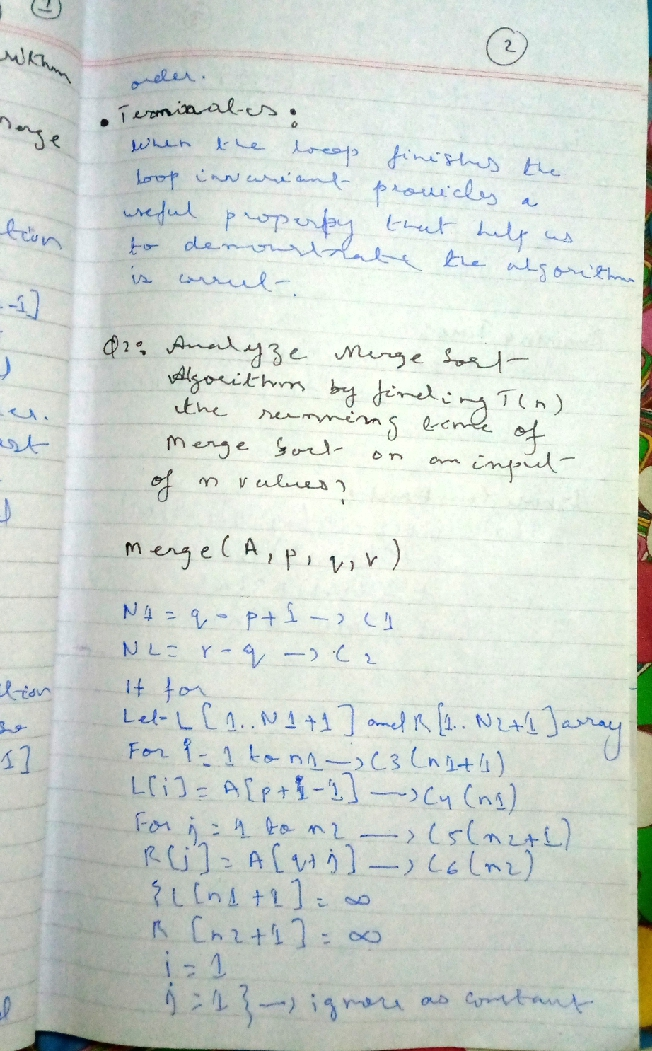 1
2
order.
• Terminates :
When the loop finishes the
loop invariant provides a
useful property that help us
to demonstrate the algorithm
is correct.
Q2: Analyze Merge Sort
Algorithm by finding T(n)
the running time of
Merge Sort on an input
of n values?
Merge (A, p, q, r)
N1 = q - p + 1 -> C1
N2 = r - q -> C2
It for
Let L [1..N1+1] and R[1..N2+1] array
For i = 1 to n1 -> C3 (n1+1)
L[i] = A[p+i-1] -> C4 (n1)
For j = 1 to n2 -> C5 (n2+1)
R[j] = A[q+j] -> C6 (n2)
{L[n1+1] = ∞
R [n2+1] = ∞
i = 1
j = 1 } -> ignore as constant